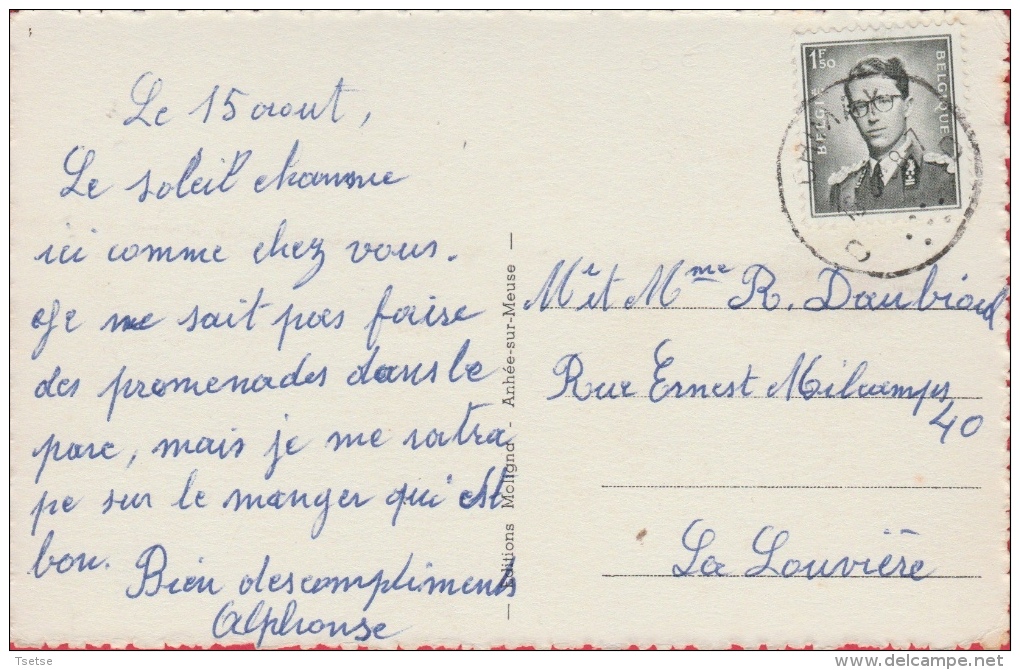 Le 15 aout,
Le soleil chamme
ici comme chez vous.
Je me sait pas faise
des promenades dans le
parc, mais je me ratra
pe sur le manger qui est
bon.
Bien des compliments
Alphonse
— Editions Molignd - Anhée-sur-Meuse —
1F50
BELGIE
BELGIQUE
Mr et Mme R. Daubioul
Rue Ernest Milcamps
40
La Louvière
Tsetse
delcampe.net